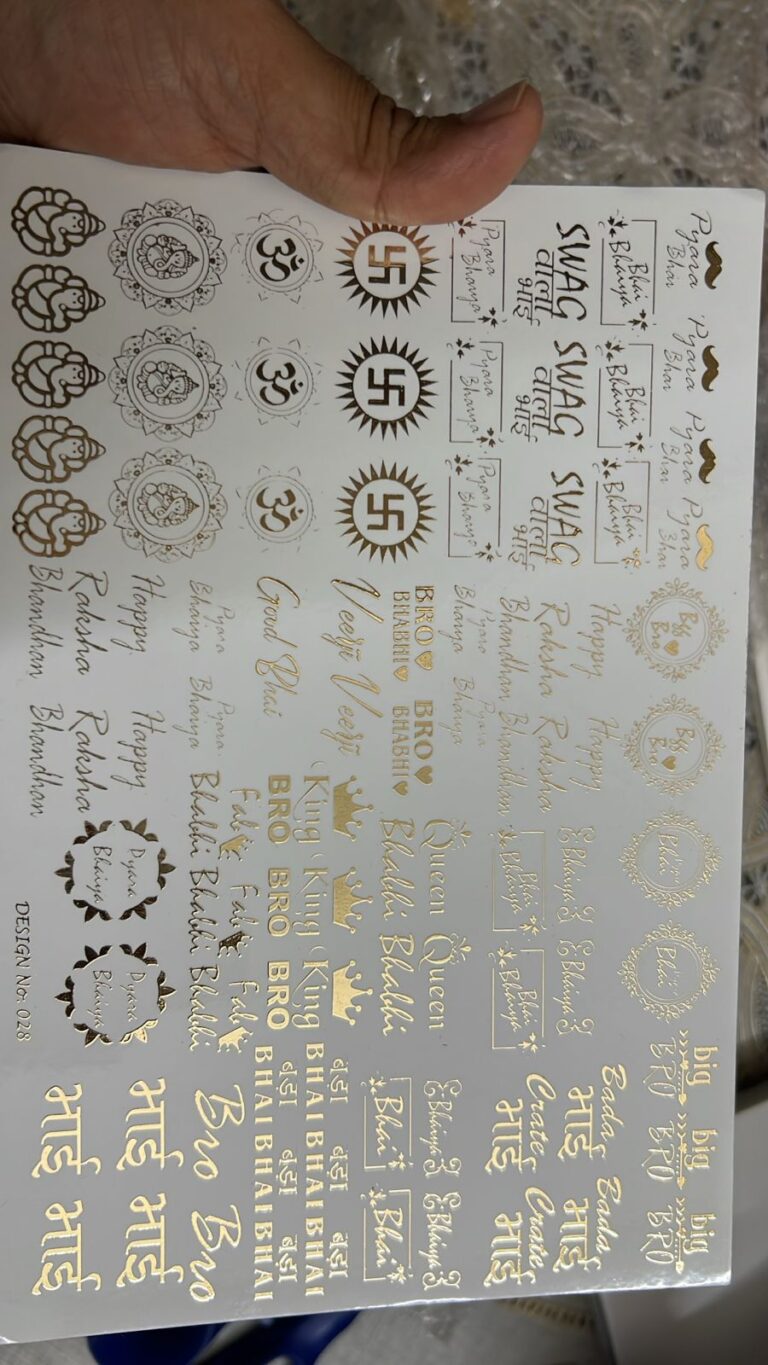 Pyara Pyara Pyara Pyara
Bhai Bhai Bhai Bhai
Bff Bff
Bro Bro
Bhai Bhai
big big big
BRO BRO BRO
Bhai Bhai Bhai
Bhaiya Bhaiya Bhaiya
Happy Happy
Raksha Raksha
Bhandhan Bhandhan
Bhaiya Bhaiya
Bhai Bhai
Bhaiya Bhaiya
Bada Bada
भाई भाई
Crate Crate
भाई भाई
SWAG SWAG SWAG
वाला वाला वाला
भाई भाई भाई
Pyara Pyara
Bhaiya Bhaiya
Pyara Pyara Pyara
Bhaiya Bhaiya Bhaiya
BRO BRO
BHABHI BHABHI
Queen Queen
Bhabhi Bhabhi
Bhaiya Bhaiya
Bhai Bhai
Veerji Veerji
King King King
BRO BRO BRO
बड़ा बड़ा बड़ा
BHAI BHAI BHAI
बड़ा बड़ा बड़ा
BHAI BHAI BHAI
ॐ ॐ ॐ
Goud Bhai
Fab Fab Fab
Bhabhi Bhabhi Bhabhi
Bro Bro
Pyara Pyara
Bhaiya Bhaiya
Happy Happy
Raksha Raksha
Bhandhan Bhandhan
Pyara Pyara
Bhaiya Bhaiya
भाई भाई
भाई भाई
DESIGN No. 028